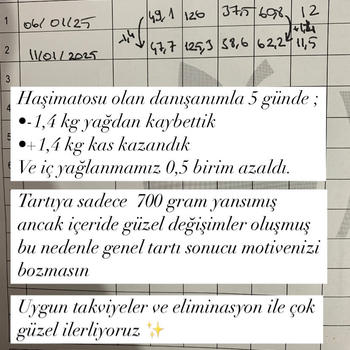 1 06/01/25 49,1 126 37,5 60,8 12
-1,4 +1,4
2 11/01/2025 47,7 125,3 38,6 62,2 11,5
3
Haşimatosu olan danışanımla 5 günde ;
•-1,4 kg yağdan kaybettik
•+1,4 kg kas kazandık
Ve iç yağlanmamız 0,5 birim azaldı.
Tartıya sadece 700 gram yansımış
ancak içeride güzel değişimler oluşmuş
bu nedenle genel tartı sonucu motivenizi
bozmasın
Uygun takviyeler ve eliminasyon ile çok
güzel ilerliyoruz ✨